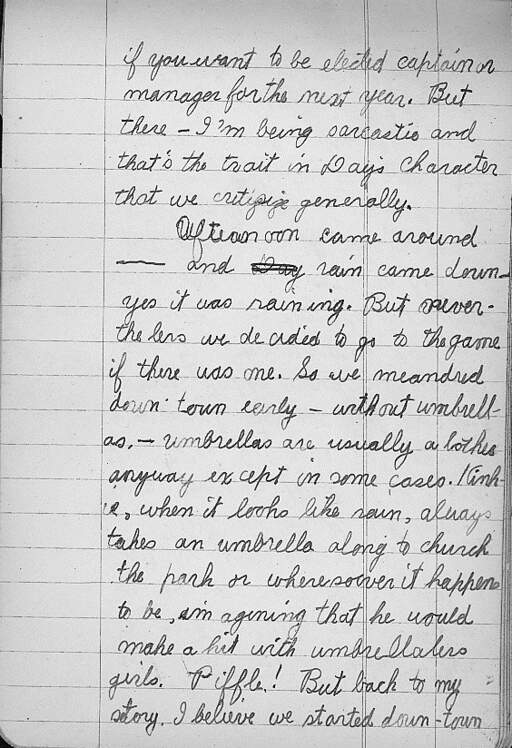 if you want to be elected captain or
manager for the next year. But
there – I'm being sarcastic and
that's the trait in Day's character
that we critizize generally.
Afternoon came around
—— and Day rain came down –
yes it was raining. But never-
the less we decided to go to the game
if there was one. So we meandred
down town early – without umbrell-
as, – umbrellas are usually a bother
anyway except in some cases. Kink-
e, when it looks like rain, always
takes an umbrella along to church
the park or wheresoever it happens
to be, imagining that he would
make a hit with umbrellaless
girls. Piffle! But back to my
story. I believe we started down-town